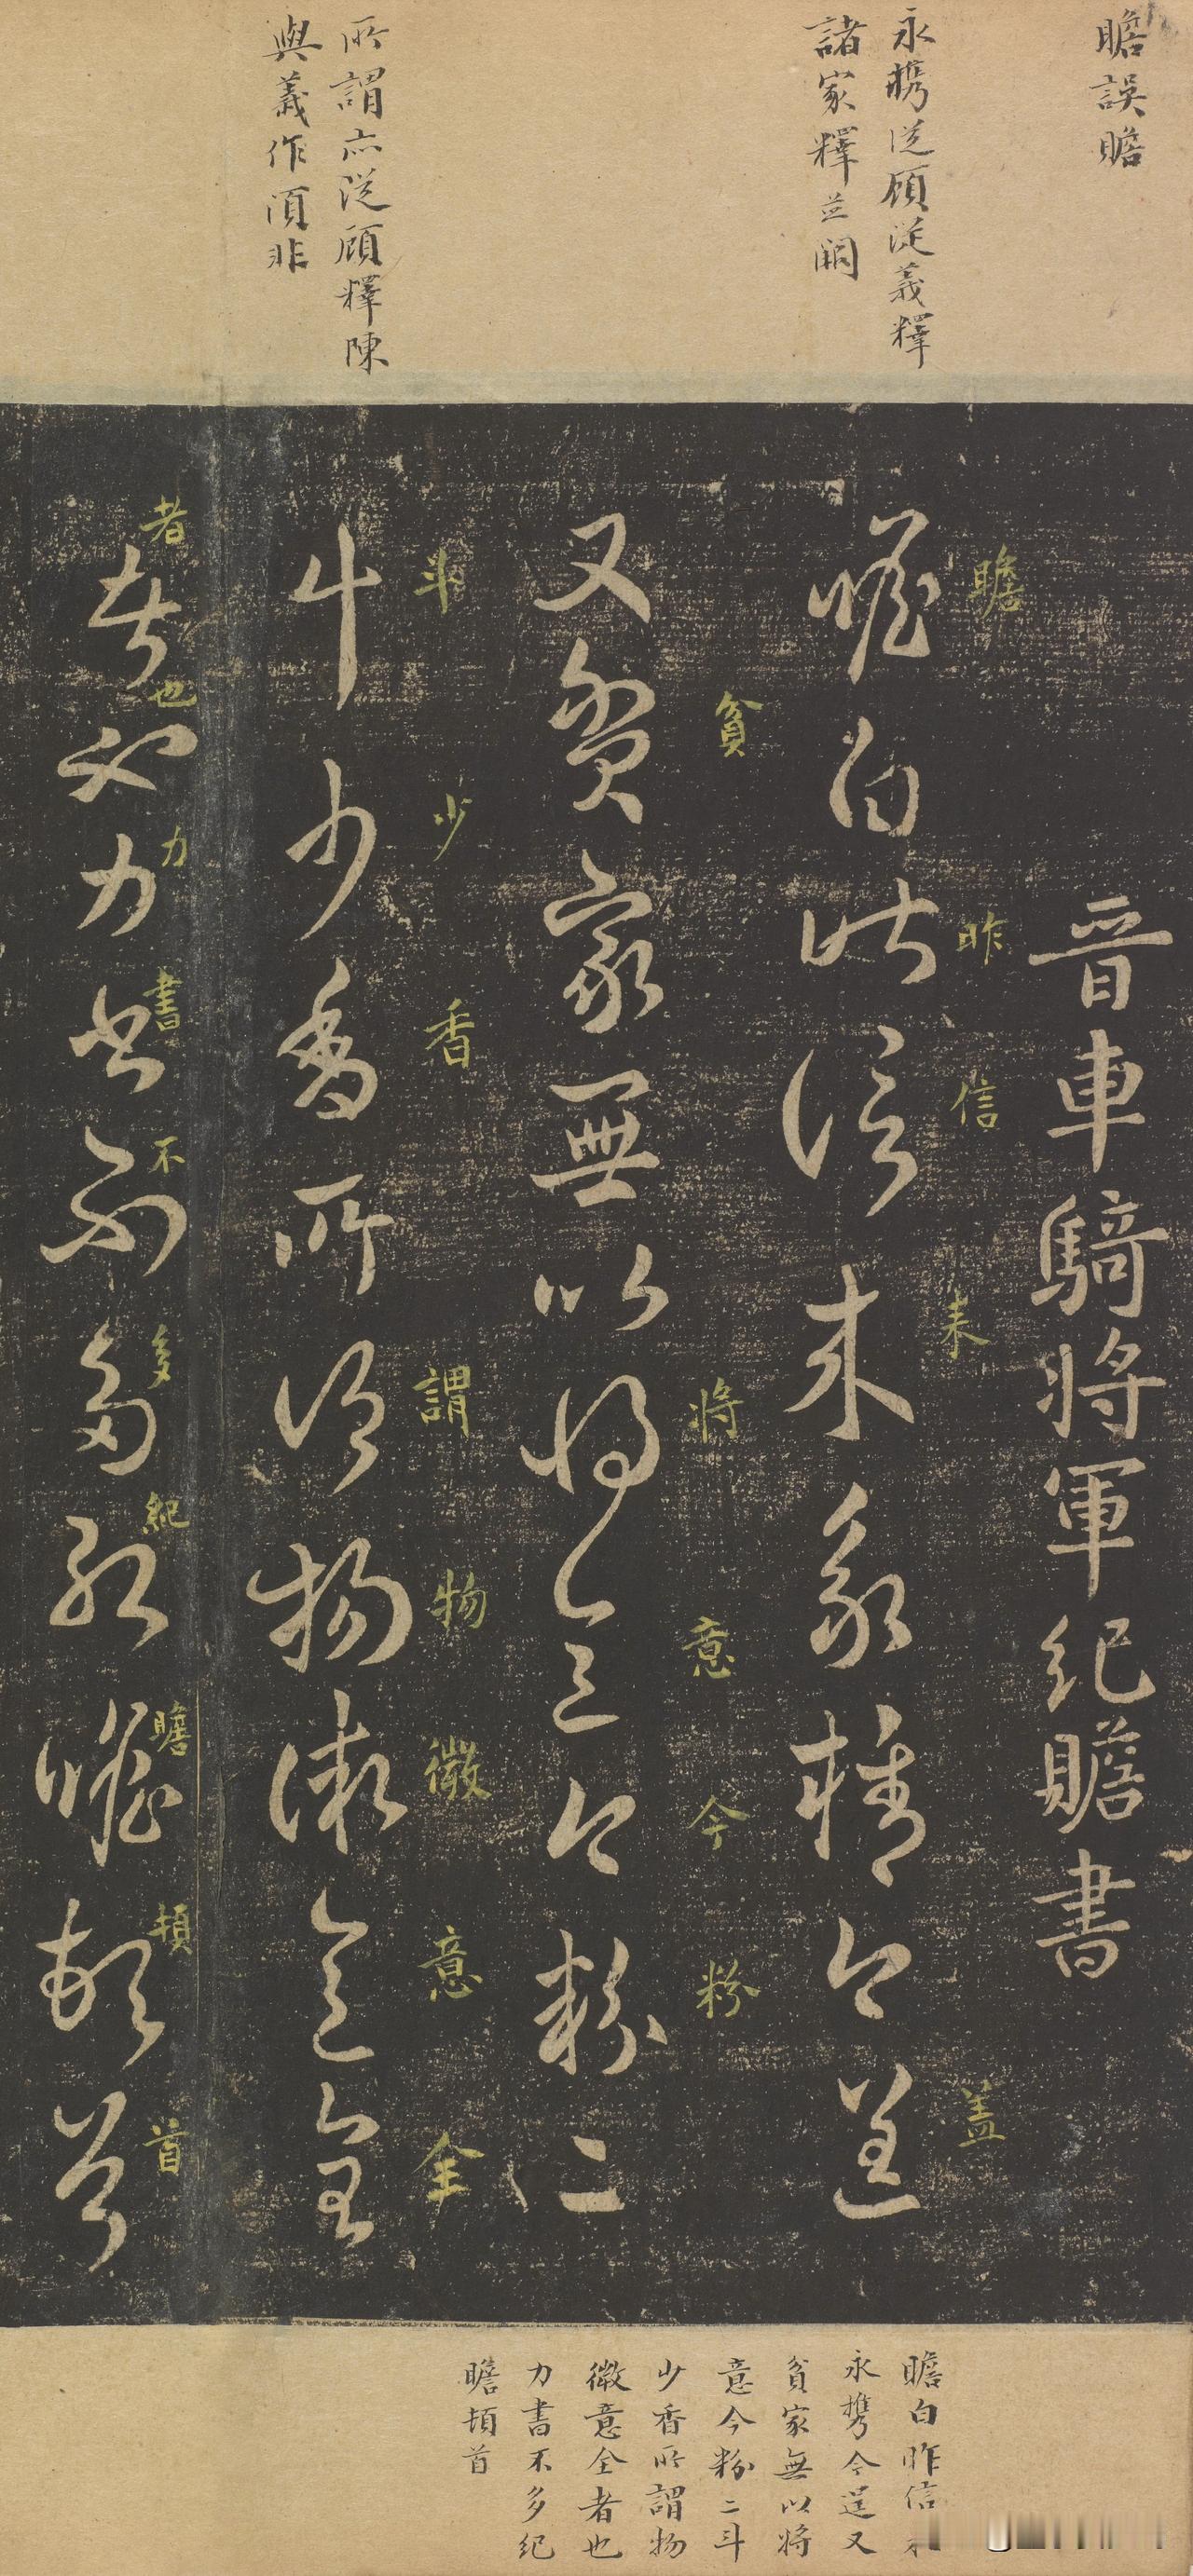 瞻誤贍
永攜從顧從義釋
諸家釋並闕
所謂亦從顧釋陳
與義作須非
晉車騎將軍紀贍書
瞻白昨信未永攜今送
又貧家無以將意今粉二
斗少香所謂物微意全
者也力書不多紀瞻頓首
瞻
昨
信
未
盖
貧
將
意
今
粉
斗
少
香
謂
物
微
意
全
者
也
力
書
不
多
紀
瞻
頓
首
瞻白昨信未
永攜今送又
貧家無以將
意今粉二斗
少香所謂物
微意全者也
力書不多紀
瞻頓首